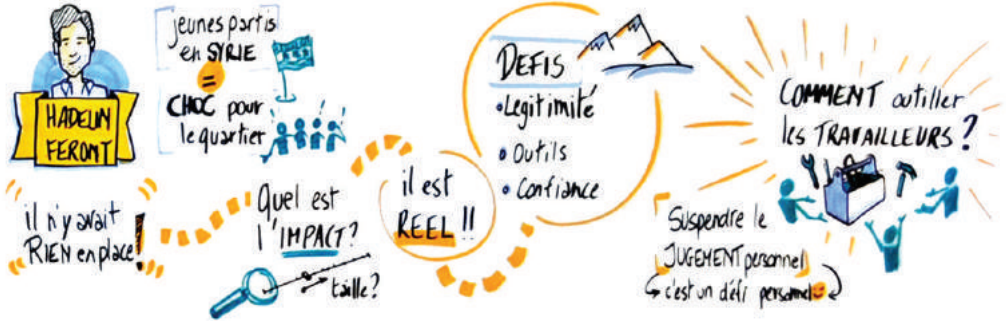 HADELIN
FERONT
jeunes partis
en SYRIE
=
CHOC pour
le quartier
il n'y avait
RIEN en place!
Quel est
l'IMPACT?
taille?
il est
REEL!!
DEFIS
• Légitimité
• Outils
• Confiance
COMMENT outiller
les TRAVAILLEURS?
Suspendre le
JUGEMENT personnel
c'est un défi personnel